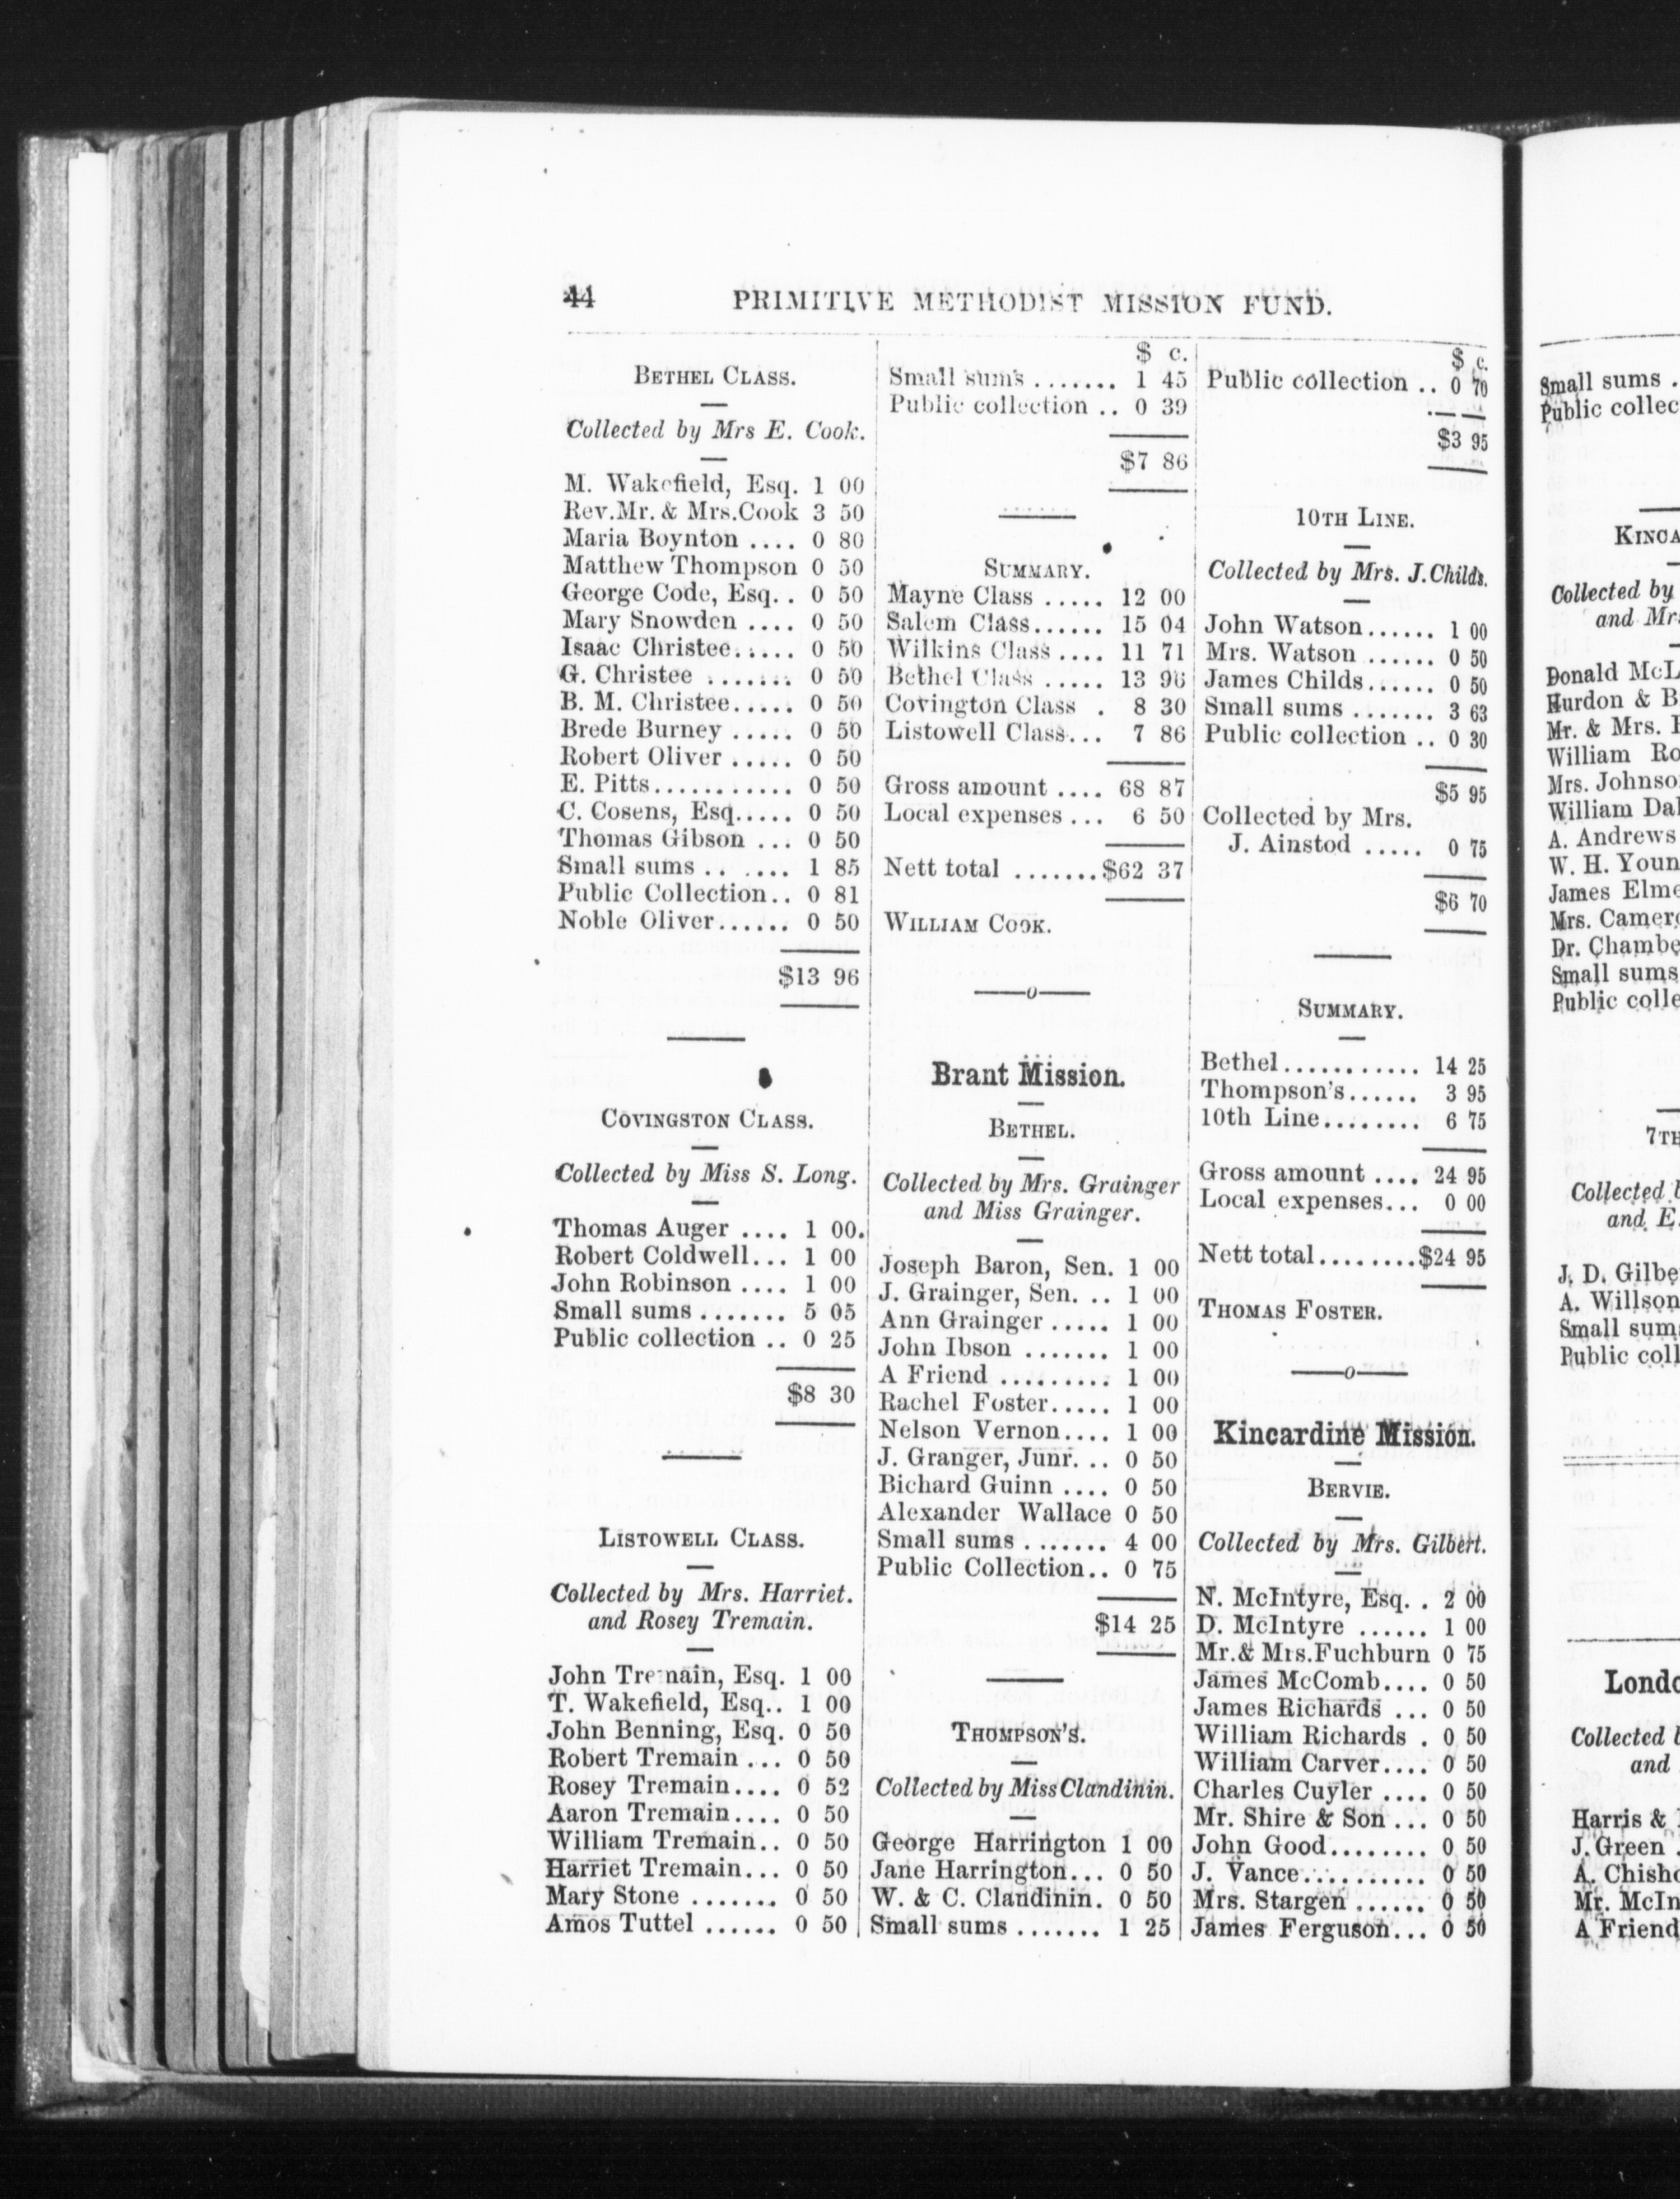 44 PRIMITIVE METHODIST MISSION FUND.
BETHEL CLASS.
Collected by Mrs E. Cook.
M. Wakefield, Esq. 1 00
Rev.Mr. & Mrs.Cook 3 50
Maria Boynton .... 0 80
Matthew Thompson 0 50
George Code, Esq. . 0 50
Mary Snowden .... 0 50
Isaac Christee..... 0 50
G. Christee ....... 0 50
B. M. Christee..... 0 50
Brede Burney ..... 0 50
Robert Oliver ..... 0 50
E. Pitts............ 0 50
C. Cosens, Esq..... 0 50
Thomas Gibson ... 0 50
Small sums .. .... 1 85
Public Collection.. 0 81
Noble Oliver...... 0 50
$13 96
COVINGSTON CLASS.
Collected by Miss S. Long.
Thomas Auger .... 1 00.
Robert Coldwell... 1 00
John Robinson .... 1 00
Small sums ....... 5 05
Public collection .. 0 25
$8 30
LISTOWELL CLASS.
Collected by Mrs. Harriet.
and Rosey Tremain.
John Tremain, Esq. 1 00
T. Wakefield, Esq.. 1 00
John Benning, Esq. 0 50
Robert Tremain ... 0 50
Rosey Tremain.... 0 52
Aaron Tremain.... 0 50
William Tremain.. 0 50
Harriet Tremain... 0 50
Mary Stone ....... 0 50
Amos Tuttel ...... 0 50
$ c.
Small sums ....... 1 45
Public collection .. 0 39
$7 86
SUMMARY.
Mayne Class ..... 12 00
Salem Class...... 15 04
Wilkins Class .... 11 71
Bethel Class ..... 13 96
Covington Class . 8 30
Listowell Class... 7 86
Gross amount .... 68 87
Local expenses ... 6 50
Nett total .......$62 37
WILLIAM COOK.
—o—
Brant Mission.
BETHEL.
Collected by Mrs. Grainger
and Miss Grainger.
Joseph Baron, Sen. 1 00
J. Grainger, Sen. .. 1 00
Ann Grainger ..... 1 00
John Ibson ....... 1 00
A Friend ......... 1 00
Rachel Foster..... 1 00
Nelson Vernon.... 1 00
J. Granger, Junr. .. 0 50
Bichard Guinn .... 0 50
Alexander Wallace 0 50
Small sums ....... 4 00
Public Collection.. 0 75
$14 25
THOMPSON'S.
Collected by Miss Clandinin.
George Harrington 1 00
Jane Harrington... 0 50
W. & C. Clandinin. 0 50
Small sums ....... 1 25
$ c.
Public collection .. 0 70
$3 95
10TH LINE.
Collected by Mrs. J. Childs.
John Watson...... 1 00
Mrs. Watson ...... 0 50
James Childs...... 0 50
Small sums ....... 3 63
Public collection .. 0 30
$5 95
Collected by Mrs.
J. Ainstod ..... 0 75
$6 70
SUMMARY.
Bethel........... 14 25
Thompson's...... 3 95
10th Line........ 6 75
Gross amount .... 24 95
Local expenses... 0 00
Nett total........$24 95
THOMAS FOSTER.
—o—
Kincardine Mission.
BERVIE.
Collected by Mrs. Gilbert.
N. McIntyre, Esq. . 2 00
D. McIntyre ...... 1 00
Mr.& Mrs.Fuchburn 0 75
James McComb.... 0 50
James Richards ... 0 50
William Richards . 0 50
William Carver.... 0 50
Charles Cuyler .... 0 50
Mr. Shire & Son ... 0 50
John Good........ 0 50
J. Vance.......... 0 50
Mrs. Stargen ...... 0 50
James Ferguson... 0 50
Small sums .
Public collec
KINCA
Collected by
and Mr
Donald McL
Hurdon & B
Mr. & Mrs.
William Ro
Mrs. Johnso
William Dal
A. Andrews
W. H. Youn
James Elme
Mrs. Camer
Dr. Chambe
Small sums
Public colle
7TH
Collected
and E
J. D. Gilbe
A. Willson
Small sum
Public coll
Londo
Collected
and
Harris &
J. Green .
A. Chish
Mr. McIn
A Friend